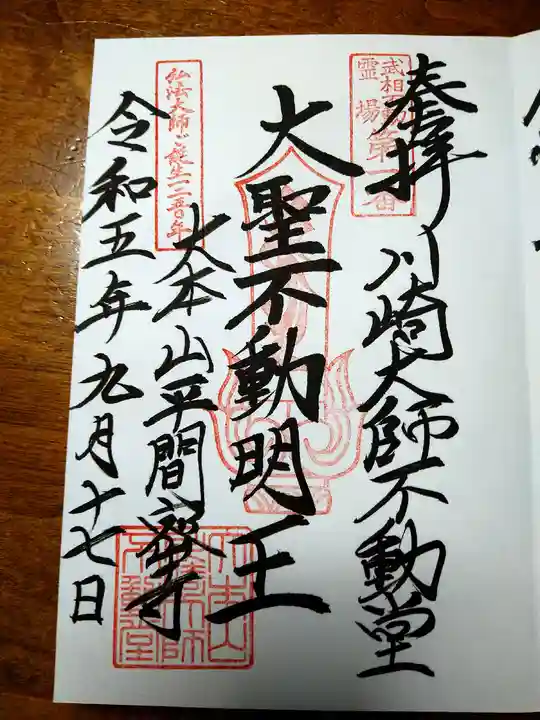 奉拝
武相不動
霊場第一番
川崎大師不動堂
大聖不動明王
弘法大師ご誕生一二五〇年
大本山平間寺
令和五年九月十七日
大本山
川崎大師
不動堂